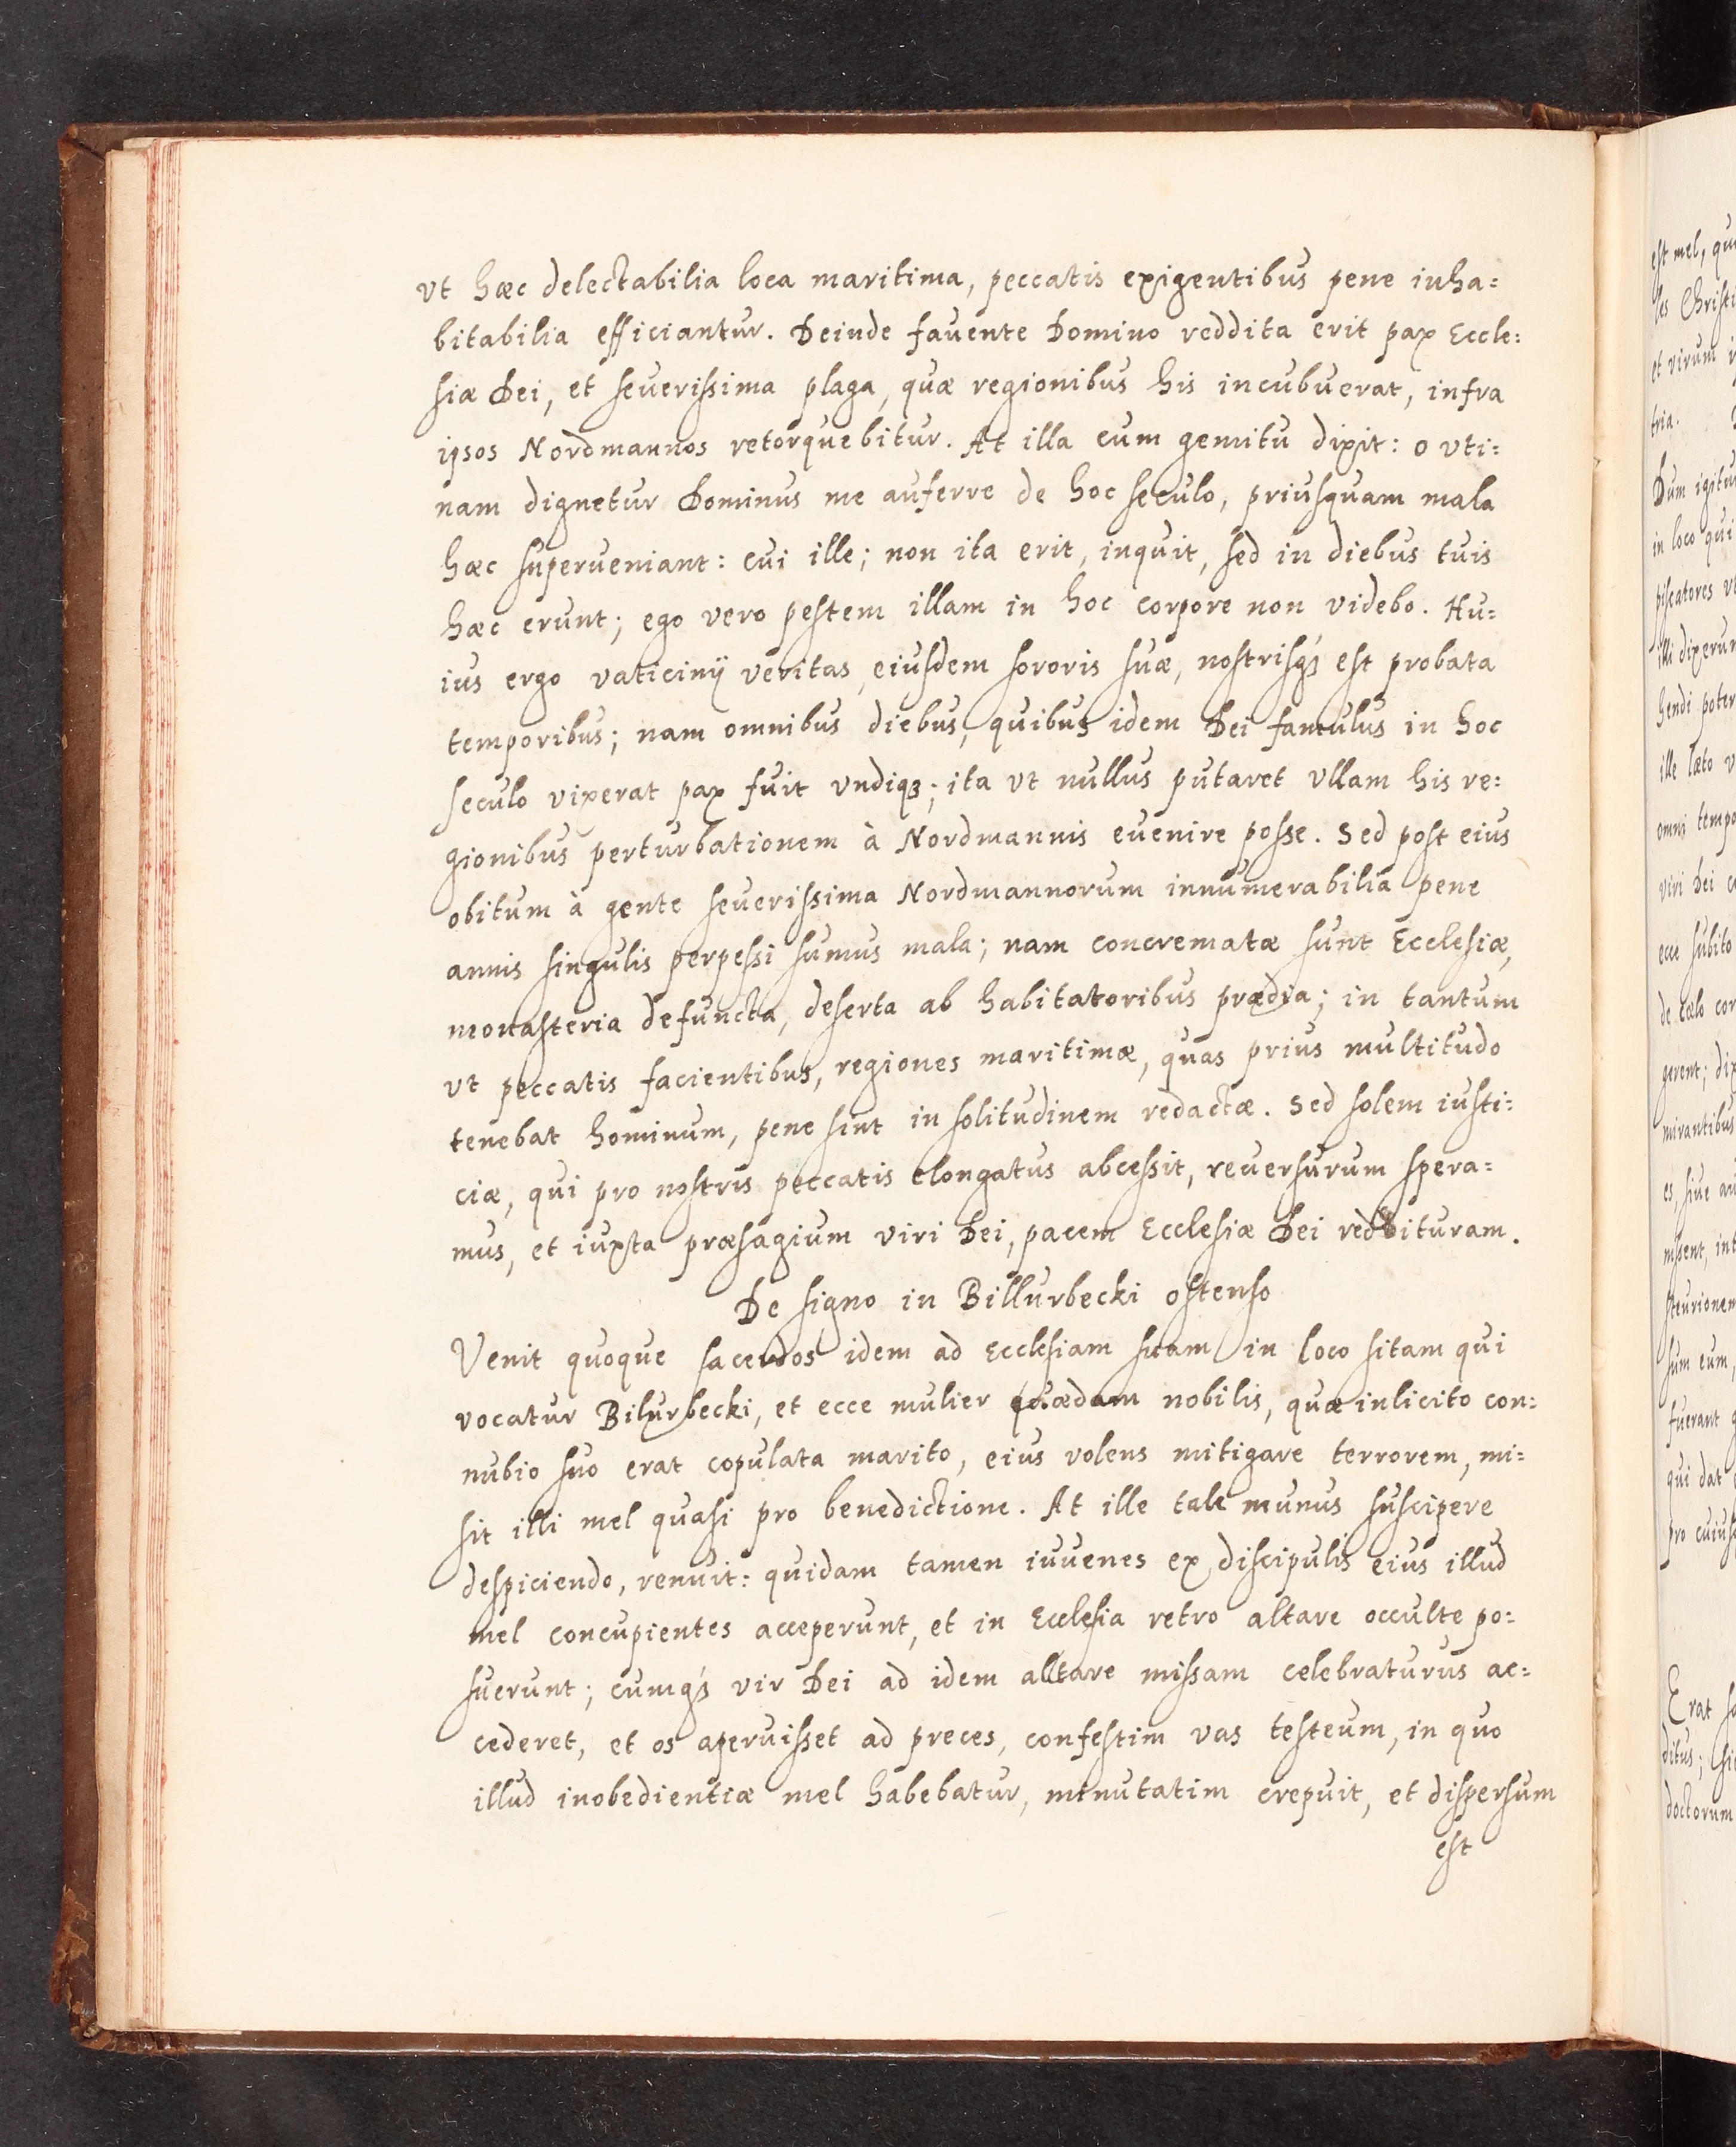 vt hæc delectabilia loca maritima, peccatis exigentibus pene inha=
bitabilia efficiantur. Deinde fauente Domino reddita erit pax Eccle=
siæ Dei, et seuerissima plaga, quæ regionibus his incubuerat, infra
ipsos Nordmannos retorquebitur. At illa cum gemitu dixit: o vti=
nam dignetur Dominus me auferre de hoc seculo, priusquam mala
hæc superueniant: cui ille; non ita erit, inquit, sed in diebus tuis
hæc erunt; ego vero pestem illam in hoc corpore non videbo. Hu=
ius ergo vaticinij veritas, eiusdem sororis suæ, nostrisqꝫ est probata
temporibus; nam omnibus diebus, quibus idem Dei famulus in hoc
seculo vixerat pax fuit vndiqꝫ; ita vt nullus putaret vllam his re=
gionibus perturbationem à Nordmannis euenire posse. Sed post eius
obitum à gente seuerissima Nordmannorum innumerabilia pene
annis singulis perpessi sumus mala; nam concrematæ sunt Ecclesiæ,
monasteria defuncta, deserta ab habitatoribus prædia; in tantum
vt peccatis facientibus, regiones maritimæ, quas prius multitudo
tenebat hominum, pene sint in solitudinem redactæ. Sed solem iusti=
ciæ, qui pro nostris peccatis elongatus abcessit, reuersurum spera=
mus, et iuxta præsagium viri Dei, pacem Ecclesiæ Dei reddituram.
De signo in Billurbecki ostenso
Venit quoque sacerdos idem ad Ecclesiam suam in loco sitam qui
vocatur Bilurbecki, et ecce mulier quædam nobilis, quæ inlicito con=
nubio suo erat copulata marito, eius volens mitigare terrorem, mi=
sit illi mel quasi pro benedictione. At ille tale munus suscipere
despiciendo, renuit: quidam tamen iuuenes ex discipulis eius illud
mel concupientes acceperunt, et in Ecclesia retro altare occulte po=
suerunt; cumqꝫ vir Dei ad idem altare missam celebraturus ac=
cederet, et os aperuisset ad preces, confestim vas testeum, in quo
illud inobedientiæ mel habebatur, minutatim crepuit, et dispersum
est